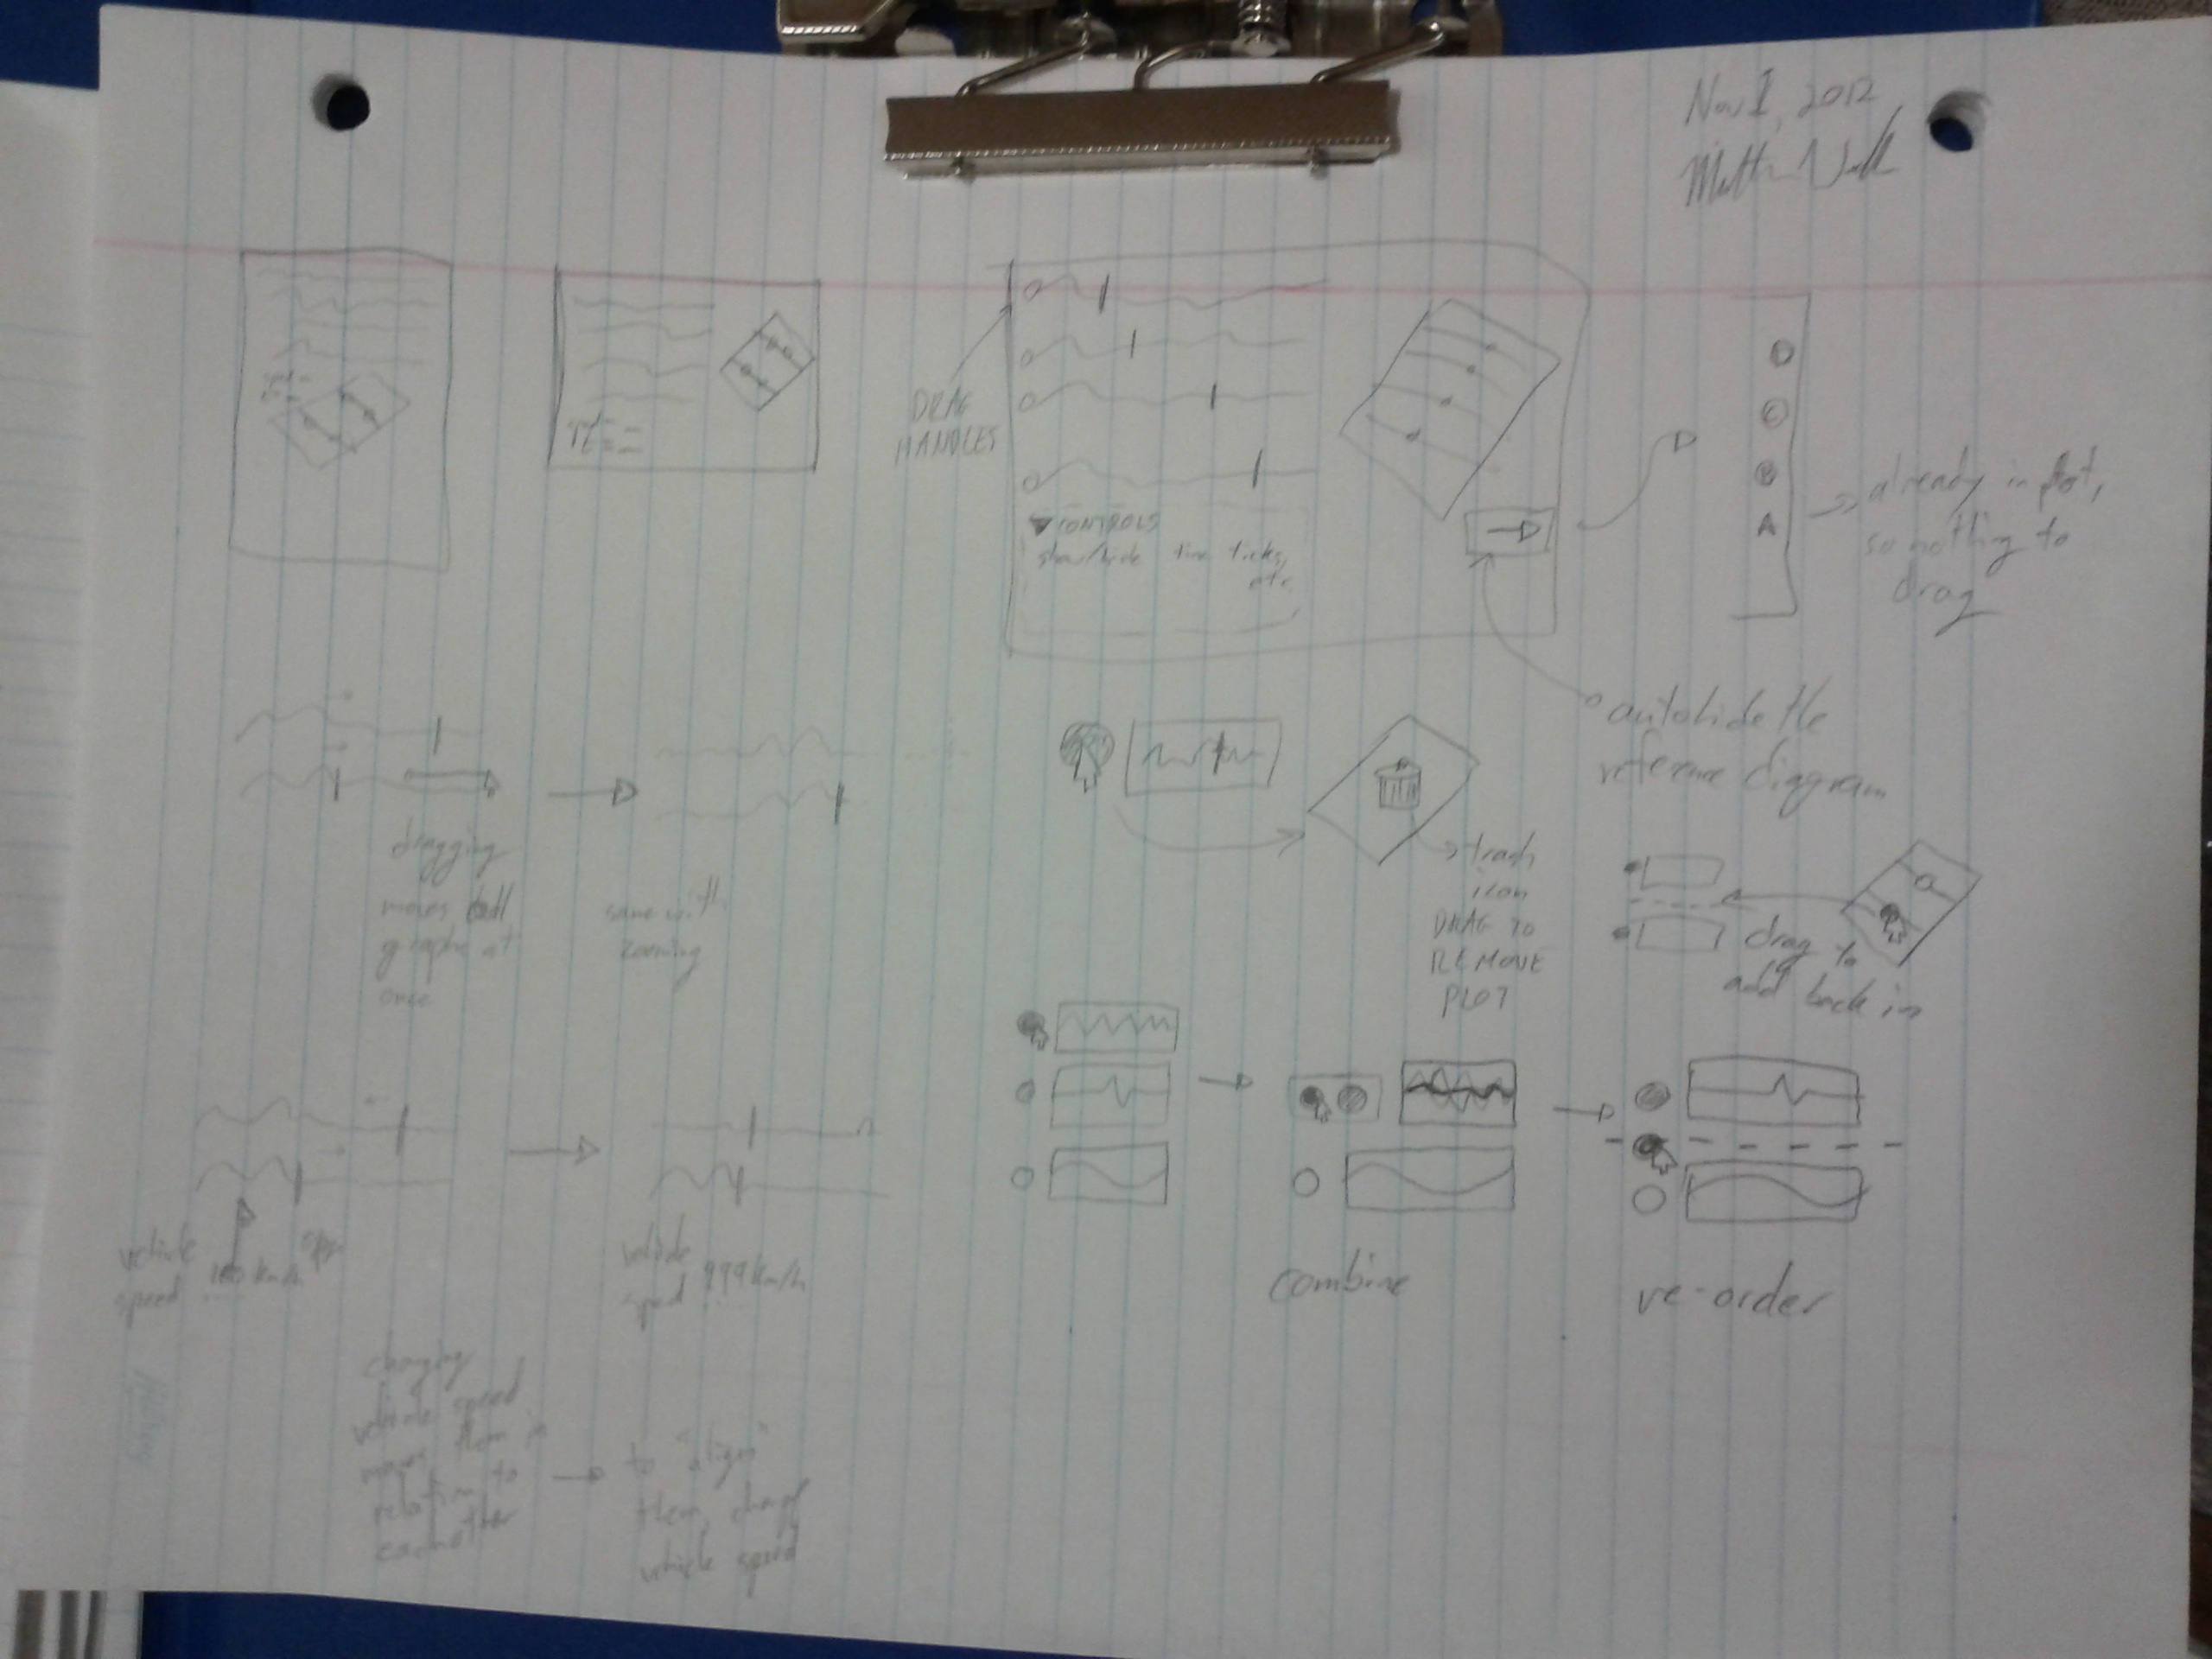 Nov 1, 2012
DRAG
HANDLES
CONTROLS
show/hide time ticks,
etc.
D
C
B
A
already in plot,
so nothing to
drag
autohide the
reference diagram
dragging
moves both
graphs at
once
same with
zooming
trash
icon
DRAG TO
REMOVE
PLOT
drag to
add back in
vehicle
speed 100 km/h
vehicle
speed 999 km/h
combine
re-order
changing
vehicle speed
moves them in
relation to
eachother
to "align"
them, change
vehicle speed